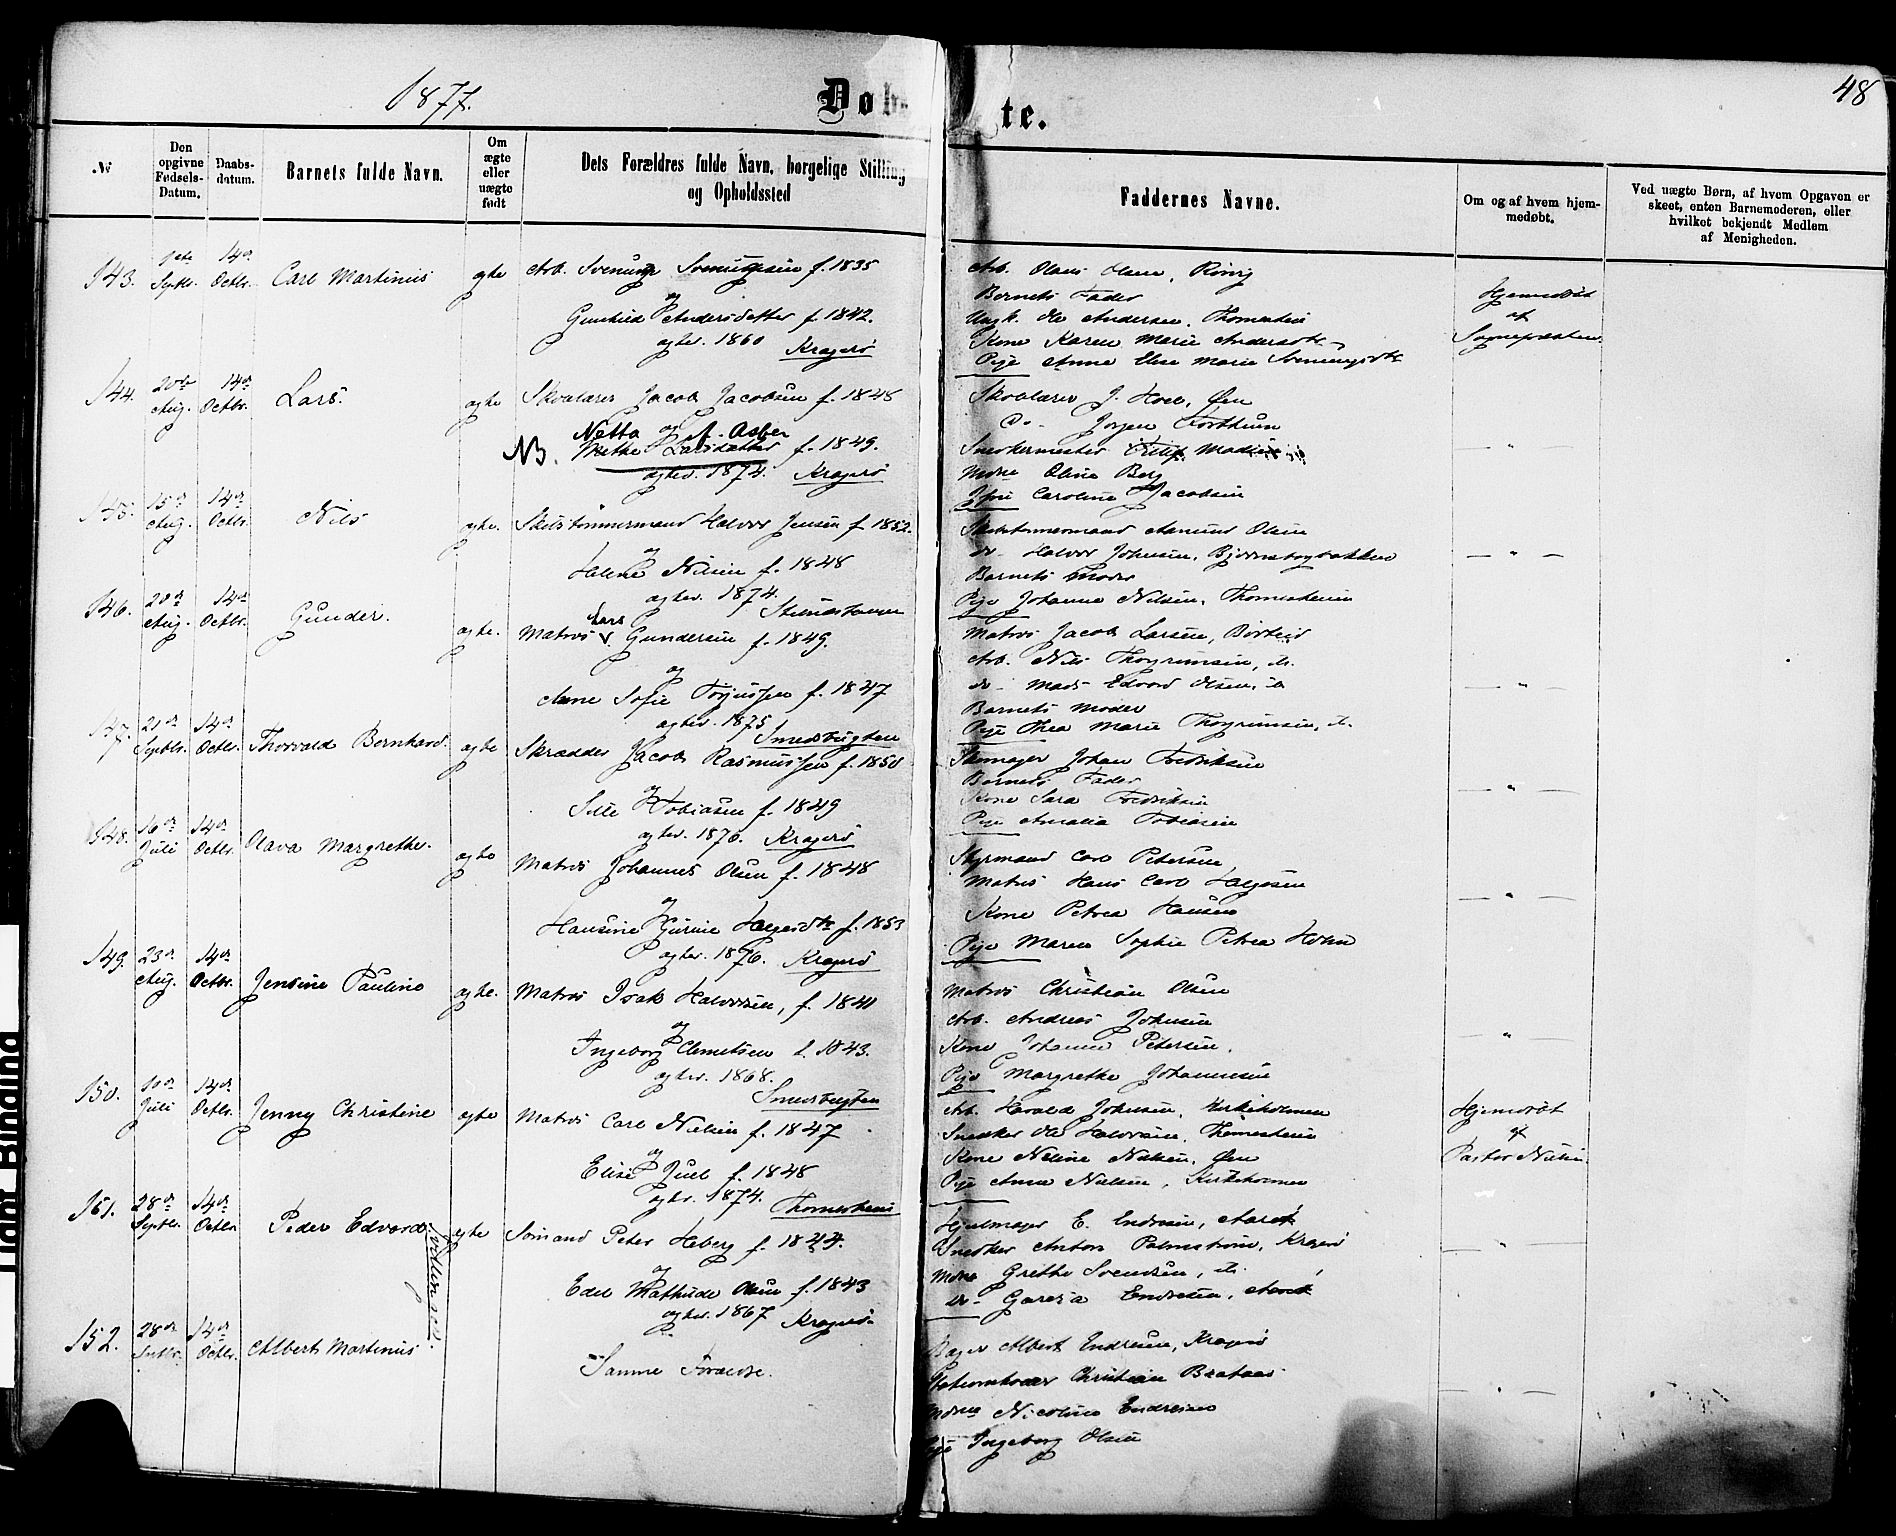 1877.
Døbte.
48
No
Den opgivne Fødsels-Datum.
Daabs-datum.
Barnets fulde Navn.
Om ægte eller uægte født
Dets Forældres fulde Navn, borgelige Stilling og Opholdssted
Faddernes Navne.
Om og af hvem hjem-medøbt.
Ved uægte Børn, af hvem Opgaven er skeet, enten Barnemoderen, eller hvilket bekjendt Medlem af Menigheden.
143.
1ste Septbr.
14de Octbr.
Carl Martinus
ægte
Arb. f. 1835
og
Gunhild Andersdatter f. 1842.
ægtev. 1860 Kragerø
Arb. Olaus Olsen,
Barnets Fader
Ungk. Ole Andersen,
Kone Karen Marie
Pige Anne Else Marie
Hjemedøbt
af
Sognepresten.
144.
20de Aug.
14de Octbr.
Lars.
ægte
Skolelærer Jacob Jacobsen f. 1848
og
Netta f. Asber
NB. Methe Larsdatter f. 1849.
ægtev. 1874. Kragerø
Skolelærer J. Øen
Do- Jørgen
Snedkermester
Mdme Oline Berg
Caroline Jacobsen
145.
15de Aug.
14de Octbr.
Nils
ægte.
Skibstømmermand Halvor Jensen f. 1852.
og
Helene Nilsen f. 1848
ægtev. 1874.
Skibstømmermand Aanund Olsen
do- Halvor Johnsen,
Barnets Moder
Pige Johanne Nilsen,
146.
20de Aug.
14de Octbr.
Gunder.
ægte.
Matros Lars Gundersen f. 1849.
og
Anne Sofie Torjussen f. 1847
ægtev. 1875 Smedsbugten
Matros Jacob Larsen,
Arb. Nils Thorgrimsen, do.
do- Mads Edvard Olsen, do
Barnets Moder
Pige Thea Marie Thorgrimsen, do.
147.
21de Septbr.
14de Octbr.
Thorvald Bernhard.
ægte
Skrædder Jacob Rasmussen f. 1850
og
Tobiasen f. 1849
ægtev. 1870. Kragerø
Skomager Johan Fredriksen
Barnets Fader
Kone Sara Fredriksen
Pige Amalia Tobiasen
148.
16de Juli
14de Octbr.
Olava Margrethe.
ægte
Matros Johannes Olsen f. 1848
og
Hansine f. 1853
ægtev. 1876. Kragerø
Styrmand Carl Petersen
Matros Hans Carl Helgesen
Kone Petrea Hansen
Pige Maren Sophie Petrea Holm
149.
23de Aug.
14de Octbr.
Jensine Pauline
ægte.
Matros Isak Halvorsen, f. 1841
og
Ingeborg Clemetsen f. 1843.
ægtev. 1868.
Smedsbugten
Matros Christian Olsen
Arb. Andreas Johnsen
Kone Johanne Petersen.
Pige Margrethe Johannesen
150.
10de Juli
14de Octbr.
Jenny Christine
ægte
Matros Carl Nielsen f. 1847
og
Elise Juel f. 1848
ægtev. 1874. Thomesheia
Arb. Harald Johnsen, Kirkeholmen
Snedker Ole Halvorsen, Thomesheia
Kone Neline Nielsen, Øen
Pige Anne Nielsen, Kirkeholmen
Hjemedøbt
af
Pastor Nilsen
151.
28de Septbr.
14de Octbr.
Peder Edvard.
Tvillinger
ægte
Sømand Peter Heberg f. 1844.
og
Edel Mathilde Olsen f. 1843
ægtev. 1867 Kragerø
Hjulmager E. Endresen,
Snedker Anton Palmstrøm, Kragerø
Mdme Grethe Svendsen, do.
do- Endresen,
152.
28de Septbr.
14de Octbr.
Albert Martinus
Samme Forældre.
Bager Albert Endresen, Kragerø
Christian Brataas
Mdme Nicoline Endresen
Pige Ingeborg Olsen